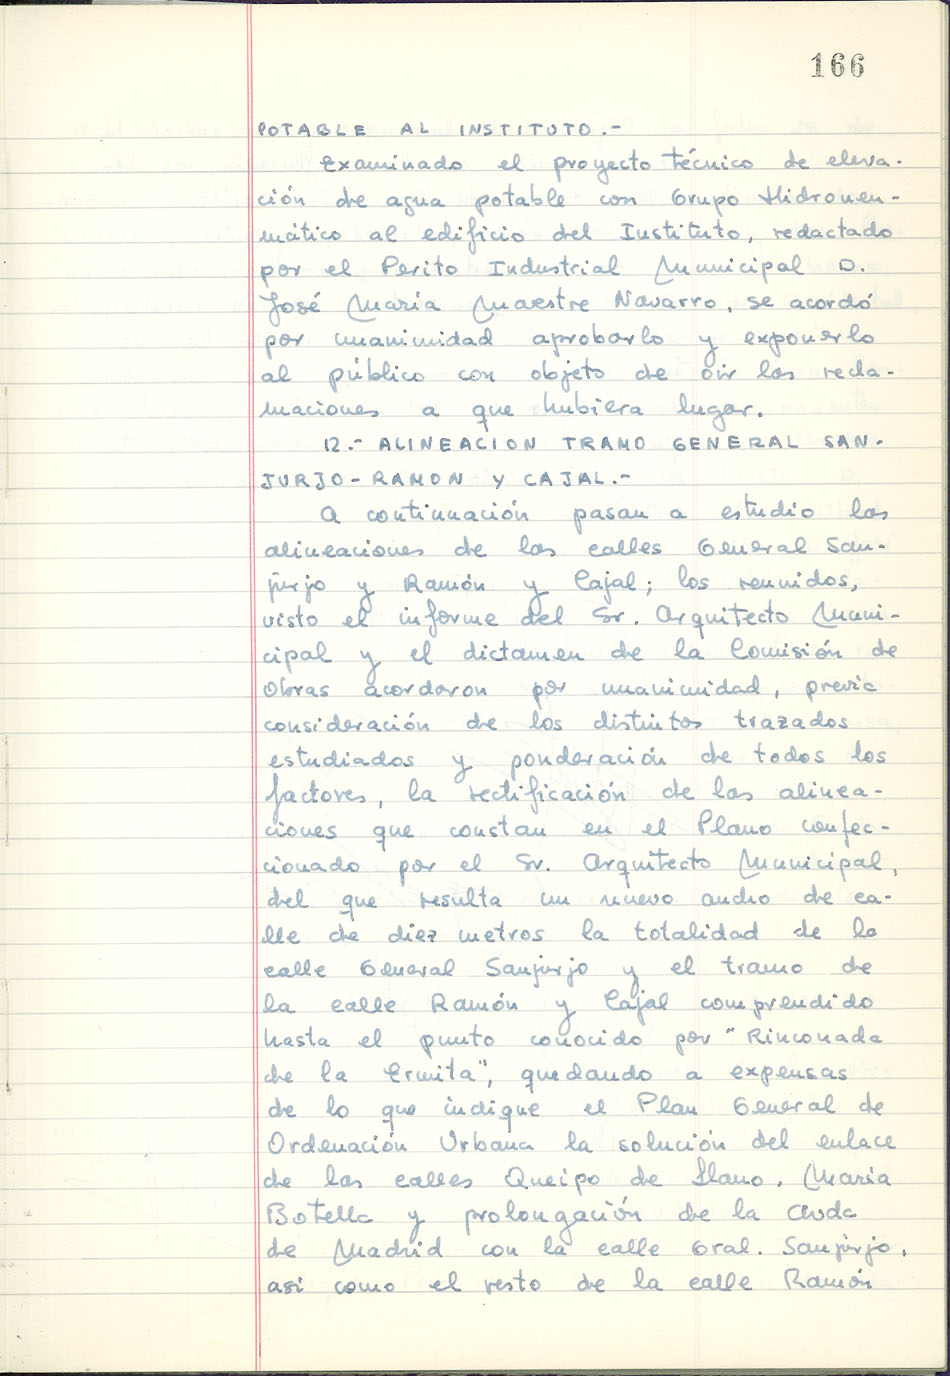 166
POTABLE AL INSTITUTO.-
Examinado el proyecto técnico de eleva-
ción de agua potable con Grupo Hidroneu-
mático al edificio del Instituto, redactado
por el Perito Industrial Municipal D.
José María Maestre Navarro, se acordó
por unanimidad aprobarlo y exponerlo
al público con objeto de oir las recla-
maciones a que hubiera lugar.
12.- ALINEACION TRAMO GENERAL SAN-
JURJO-RAMON Y CAJAL.-
A continuación pasan a estudio las
alineaciones de las calles General San-
jurjo y Ramón y Cajal; los reunidos,
visto el informe del Sr. Arquitecto Muni-
cipal y el dictamen de la Comisión de
Obras acordaron por unanimidad, previa
consideración de los distintos trazados
estudiados y ponderación de todos los
factores, la rectificación de las alinea-
ciones que constan en el Plano confec-
cionado por el Sr. Arquitecto Municipal,
del que resulta un nuevo ancho de ca-
lle de diez metros la totalidad de la
calle General Sanjurjo y el tramo de
la calle Ramón y Cajal comprendido
hasta el punto conocido por "Rinconada
de la Ermita", quedando a expensas
de lo que indique el Plan General de
Ordenación Urbana la solución del enlace
de las calles Queipo de Llano, María
Botella y prolongación de la Avda
de Madrid con la calle Gral. Sanjurjo,
asi como el resto de la calle Ramón